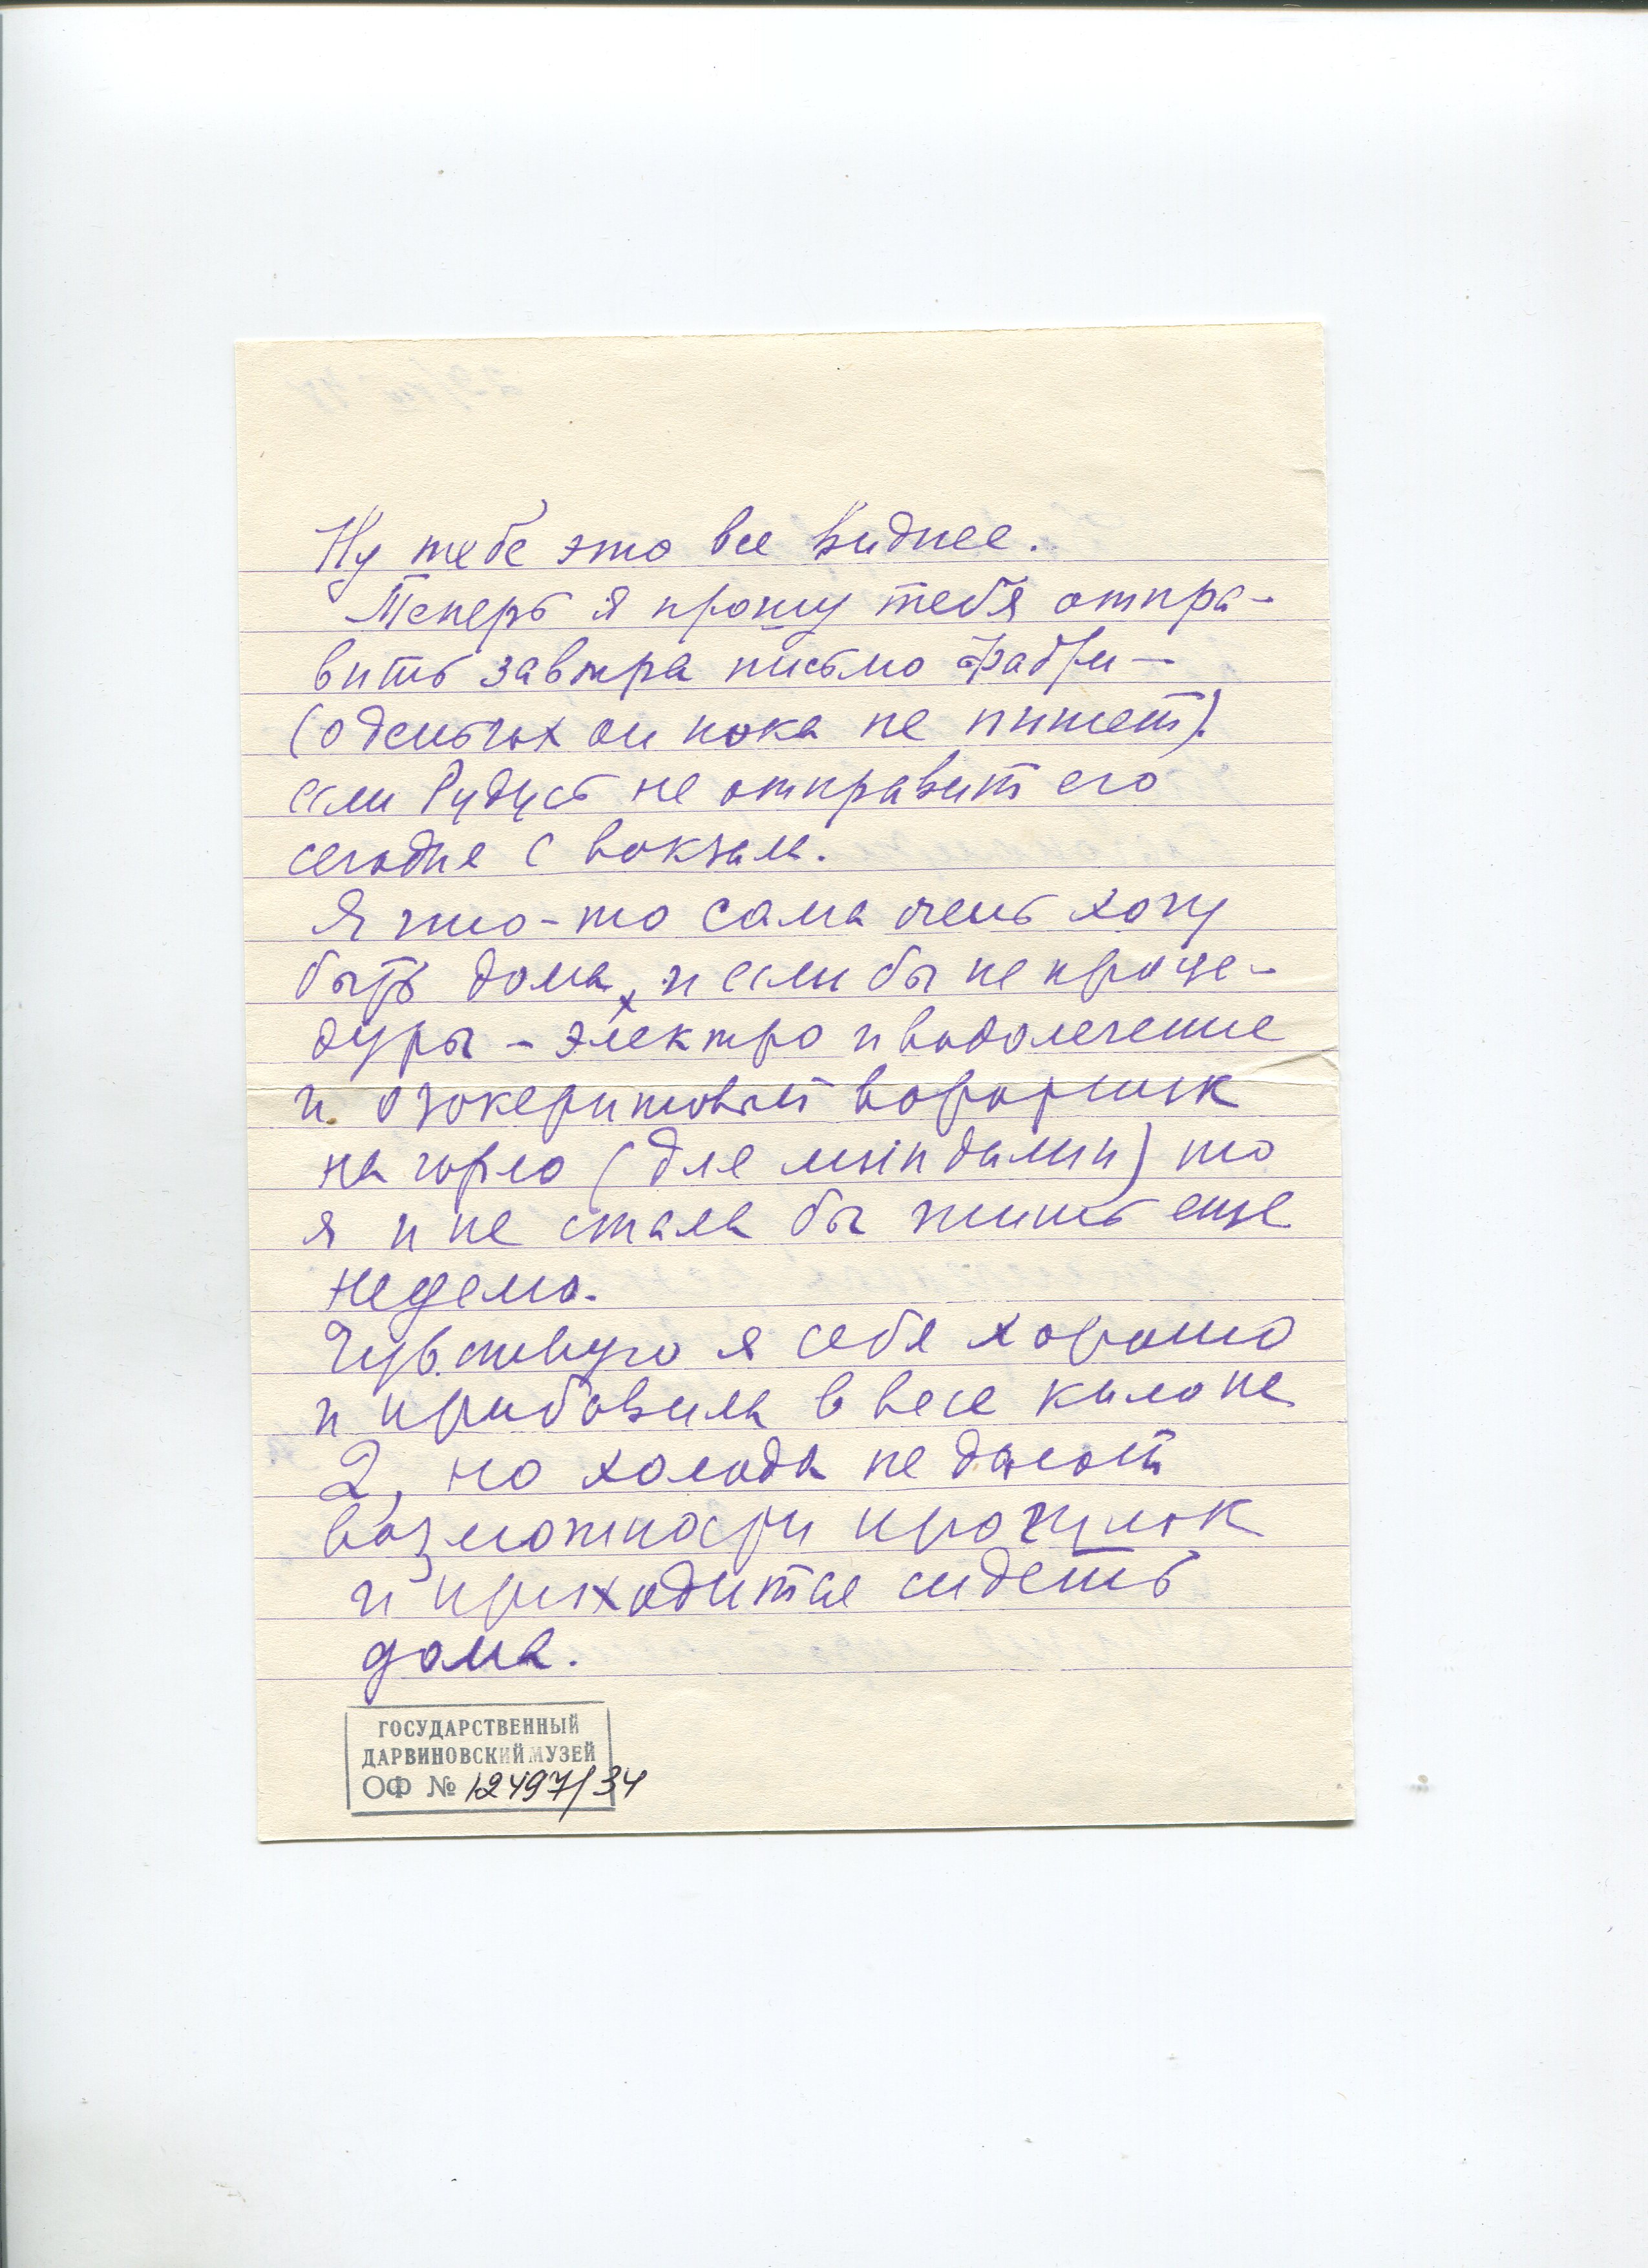 Ну тебе это все виднее.
Теперь я прошу тебя отпра-
вить завтра письмо Фабри —
(о деньгах он пока не пишет).
если Рудусь не отправит его
сегодня с вокзала.
Я что-то сама очень хочу
быть дома, и если бы не проце-
дуры – электро и водолечение
и озокеритовый воротник
на горло (для миндалин) то
я и не стала бы жить еще
неделю.
Чувствую я себя хорошо
и прибавила в весе кило на
2, но холода не дают
возможности прогулок
и приходится сидеть
дома.
ГОСУДАРСТВЕННЫЙ
ДАРВИНОВСКИЙ МУЗЕЙ
ОФ № 12497/34